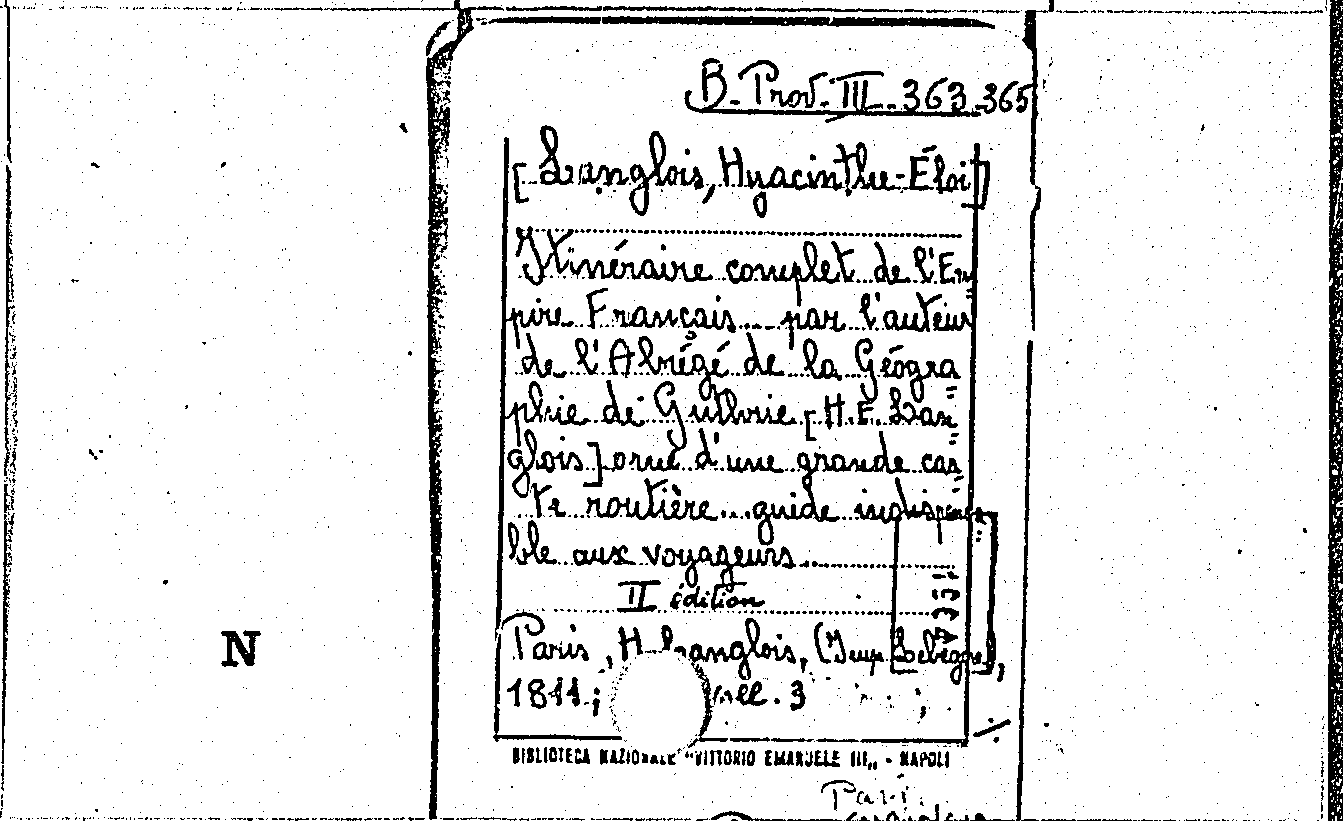 B. Prov. III. 363-365
[Langlois, Hyacinthe-Éloi]
Itinéraire complet de l'Em=
pire Français... par l'auteur
de l'Abrégé de la Géogra=
phie de Guthrie [H.E. Lan=
glois] orné d'une grande car=
te routière... guide indispensa=
ble aux voyageurs...
II édition
N
Paris, H. Langlois, (Imp. Lebègue),
1811; voll. 3 ;
BIBLIOTECA NAZIONALE "VITTORIO EMANUELE III„ - NAPOLI